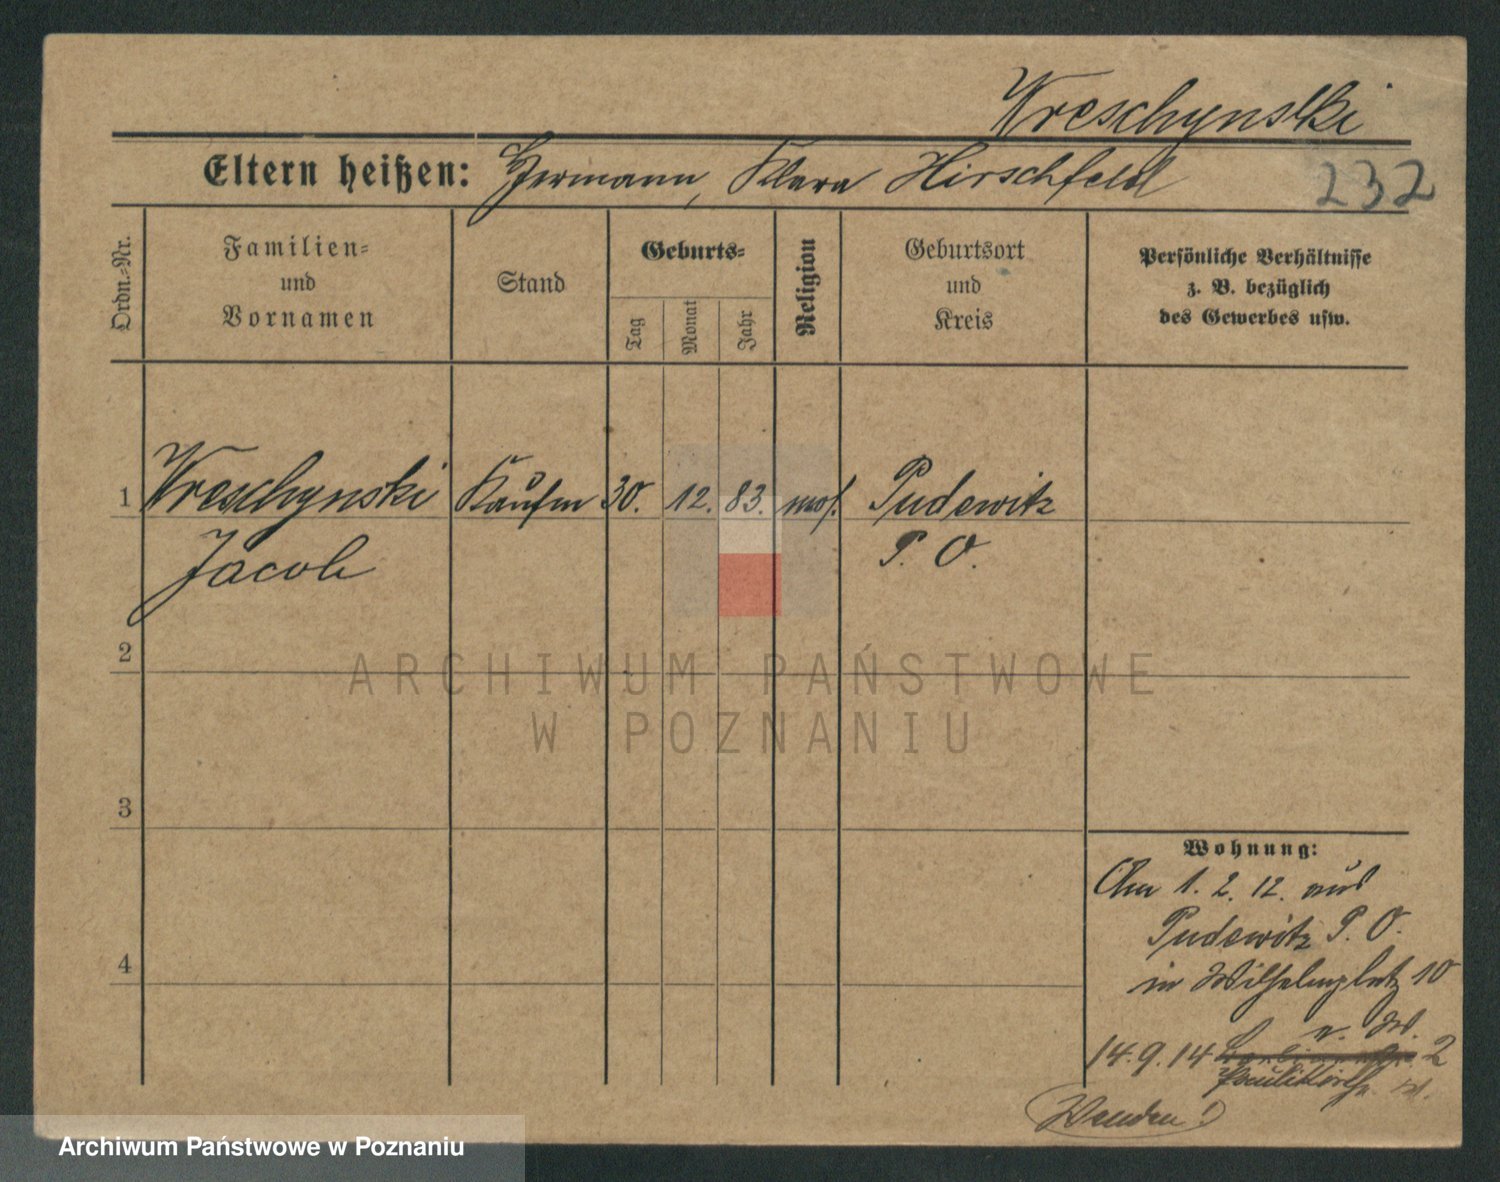 Wreschynski
Eltern heißen: Hermann, Klara Hirschfeld
232
Ordn.-Nr.
Familien-
und
Vornamen
Stand
Geburts-
Tag
Monat
Jahr
Religion
Geburtsort
und
Kreis
Persönliche Verhältnisse
z. B. bezüglich
des Gewerbes usw.
1 Wreschynski Kaufm 30. 12. 83. mos. Pudewitz
Jacob P. O.
2
ARCHIWUM PAŃSTWOWE
W POZNANIU
3
Wohnung:
Am 1. 2. 12. aus
Pudewitz P. O.
4
in Wilhelmplatz 10
14.9.14 2
Wenden!
Archiwum Państwowe w Poznaniu